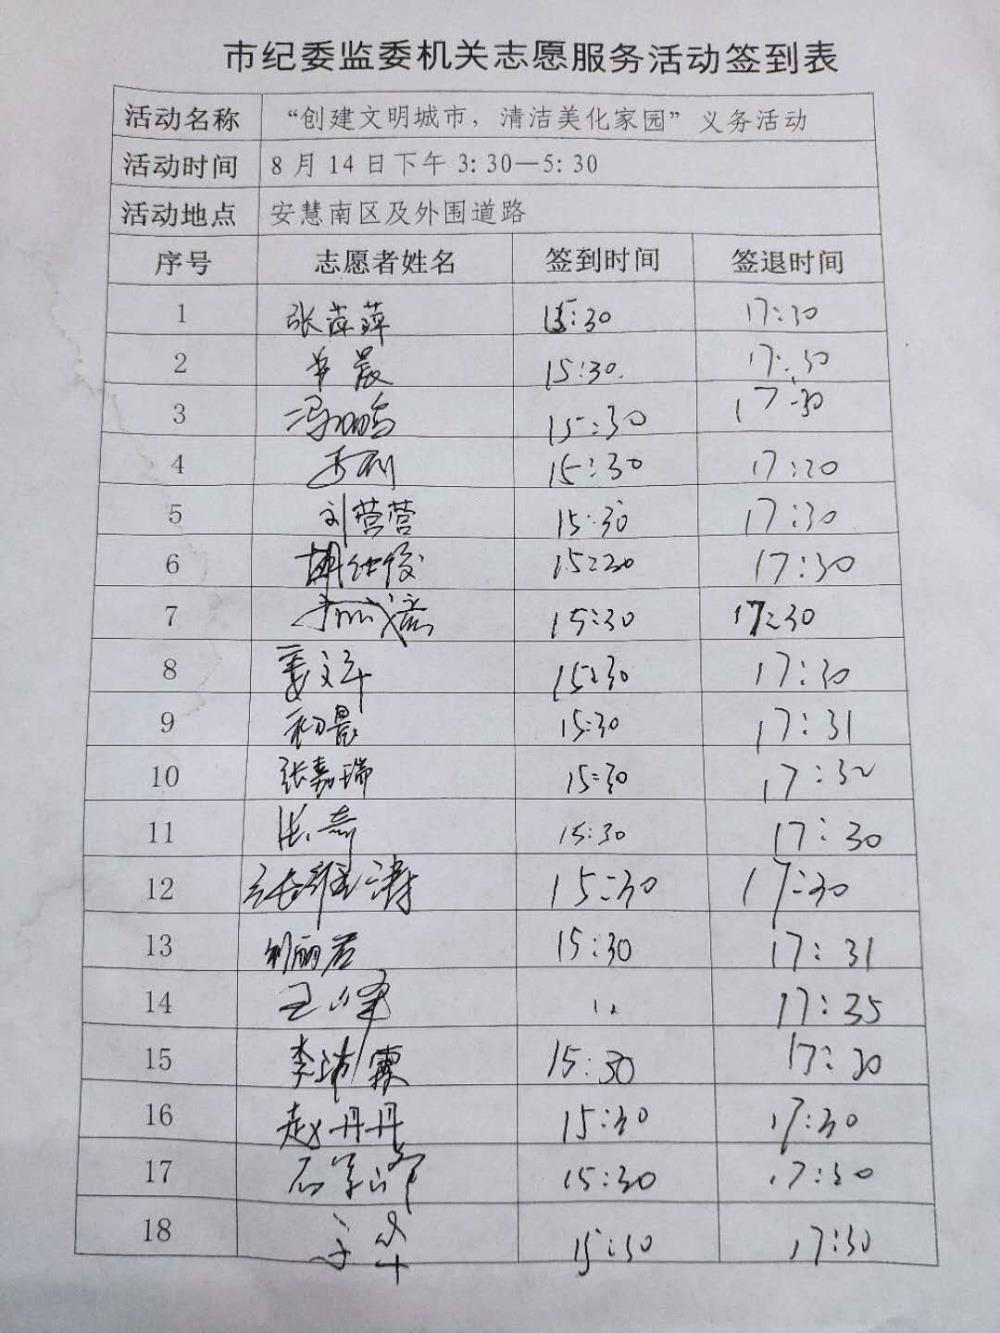 市纪委监委机关志愿服务活动签到表
活动名称 “创建文明城市，清洁美化家园”义务活动
活动时间 8月14日下午3:30—5:30
活动地点 安慧南区及外围道路
序号 志愿者姓名 签到时间 签退时间
1 张萍萍 15:30 17:30
2 晨 15:30 17:30
3 冯 15:30 17:30
4 15:30 17:20
5 刘营营 15:30 17:30
6 胡 15:30 17:30
7 15:30 17:30
8 姜文 15:30 17:30
9 初晨 15:30 17:31
10 张嘉瑞 15:30 17:30
11 张 15:30 17:30
12 张 涛 15:30 17:30
13 刘丽君 15:30 17:31
14 王峰 17:35
15 李 霖 15:30 17:30
16 赵丹丹 15:30 17:30
17 石学峰 15:30 17:30
18 15:30 17:30